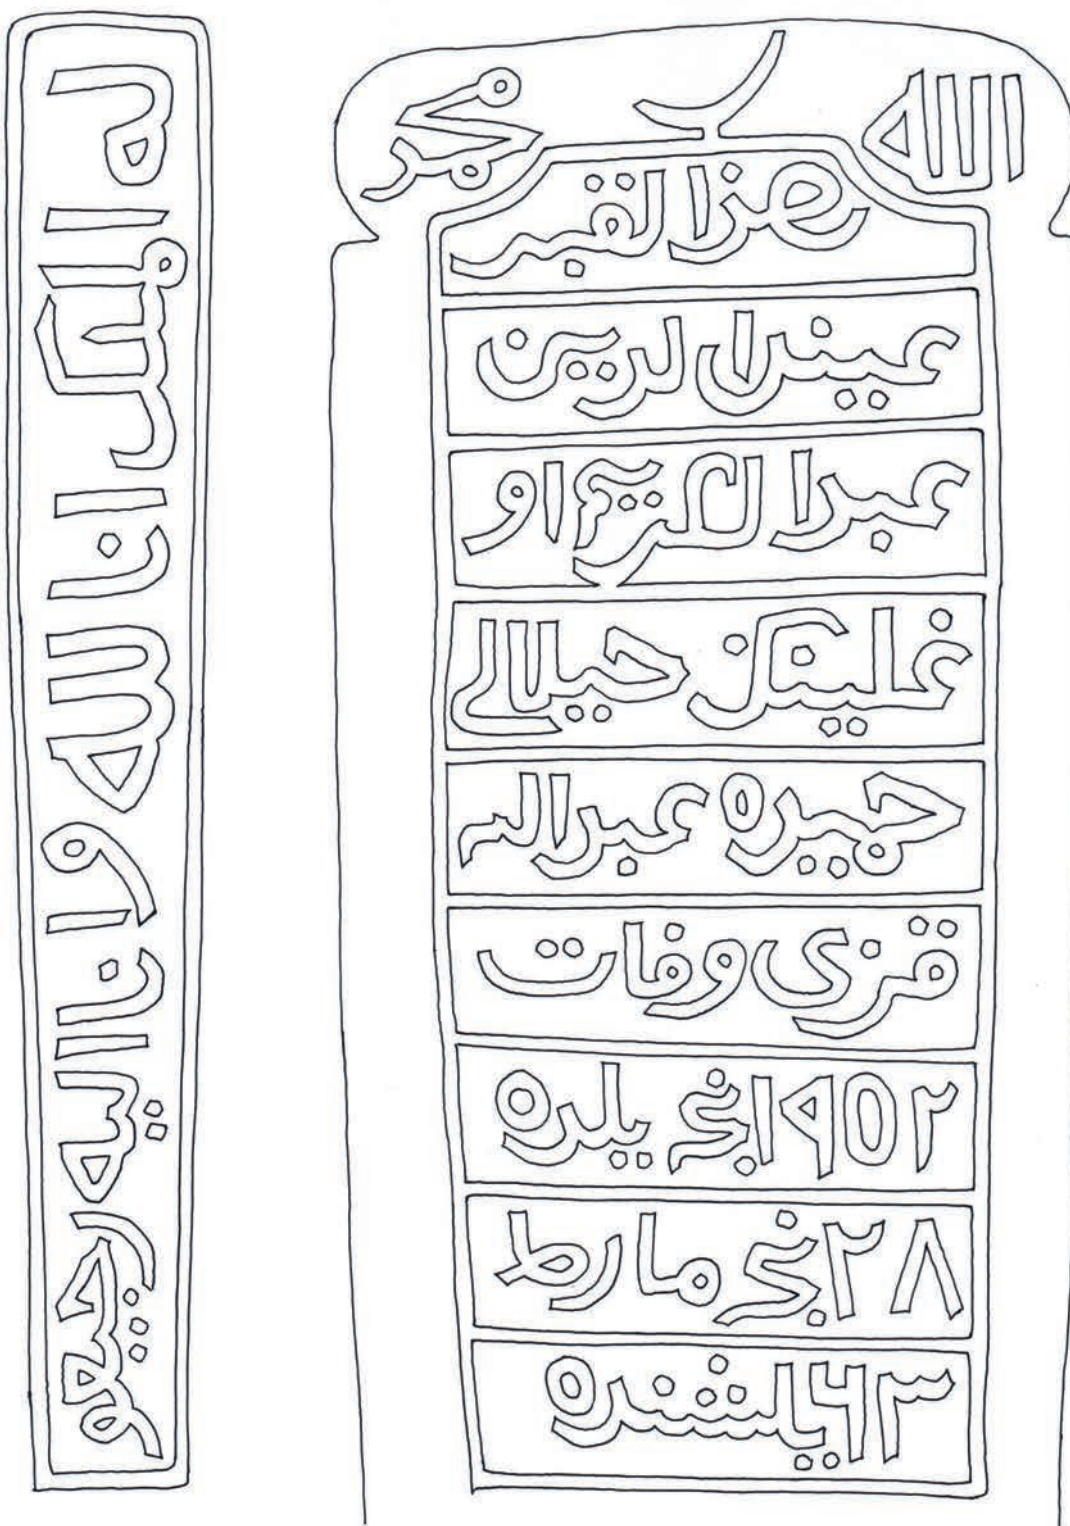 الله محمد
هزا القبر
عينل الدين
عبدالكريم او
غلينڭ حيلالى
حميده عبداله
قزى وفات
١٩٥٢نجى يلده
٢٨نجى مارط
٦٣ ياشنده
انا لله و انا اليه رجيعون